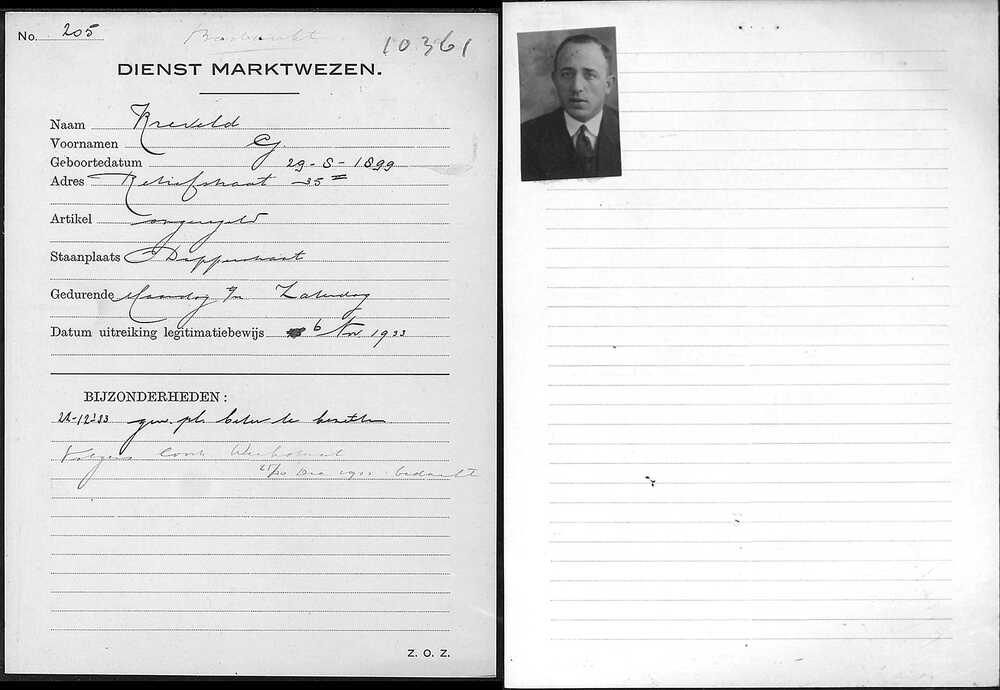 No. 205
10361
DIENST MARKTWEZEN.
Naam Kreveld
Voornamen G
Geboortedatum 29-8-1899
Adres Retiefstraat 35 II
Artikel ongeregeld
Staanplaats Dapperstraat
Gedurende Maandag t/m Zaterdag
Datum uitreiking legitimatiebewijs 6 Nov. 1933
BIJZONDERHEDEN:
22-12-33 gew. pls beter te bezetten
Volgens
Dec 19
Z. O. Z.